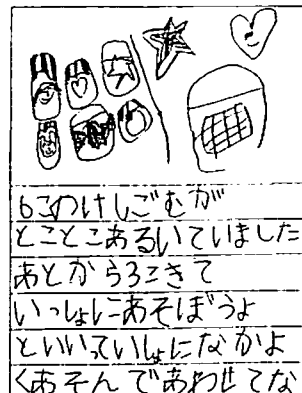 6このけしごむが
とことこあるいていました
あとから3こきて
いっしょにあそぼうよ
といいっていしょになかよ
くあそんであわせてな